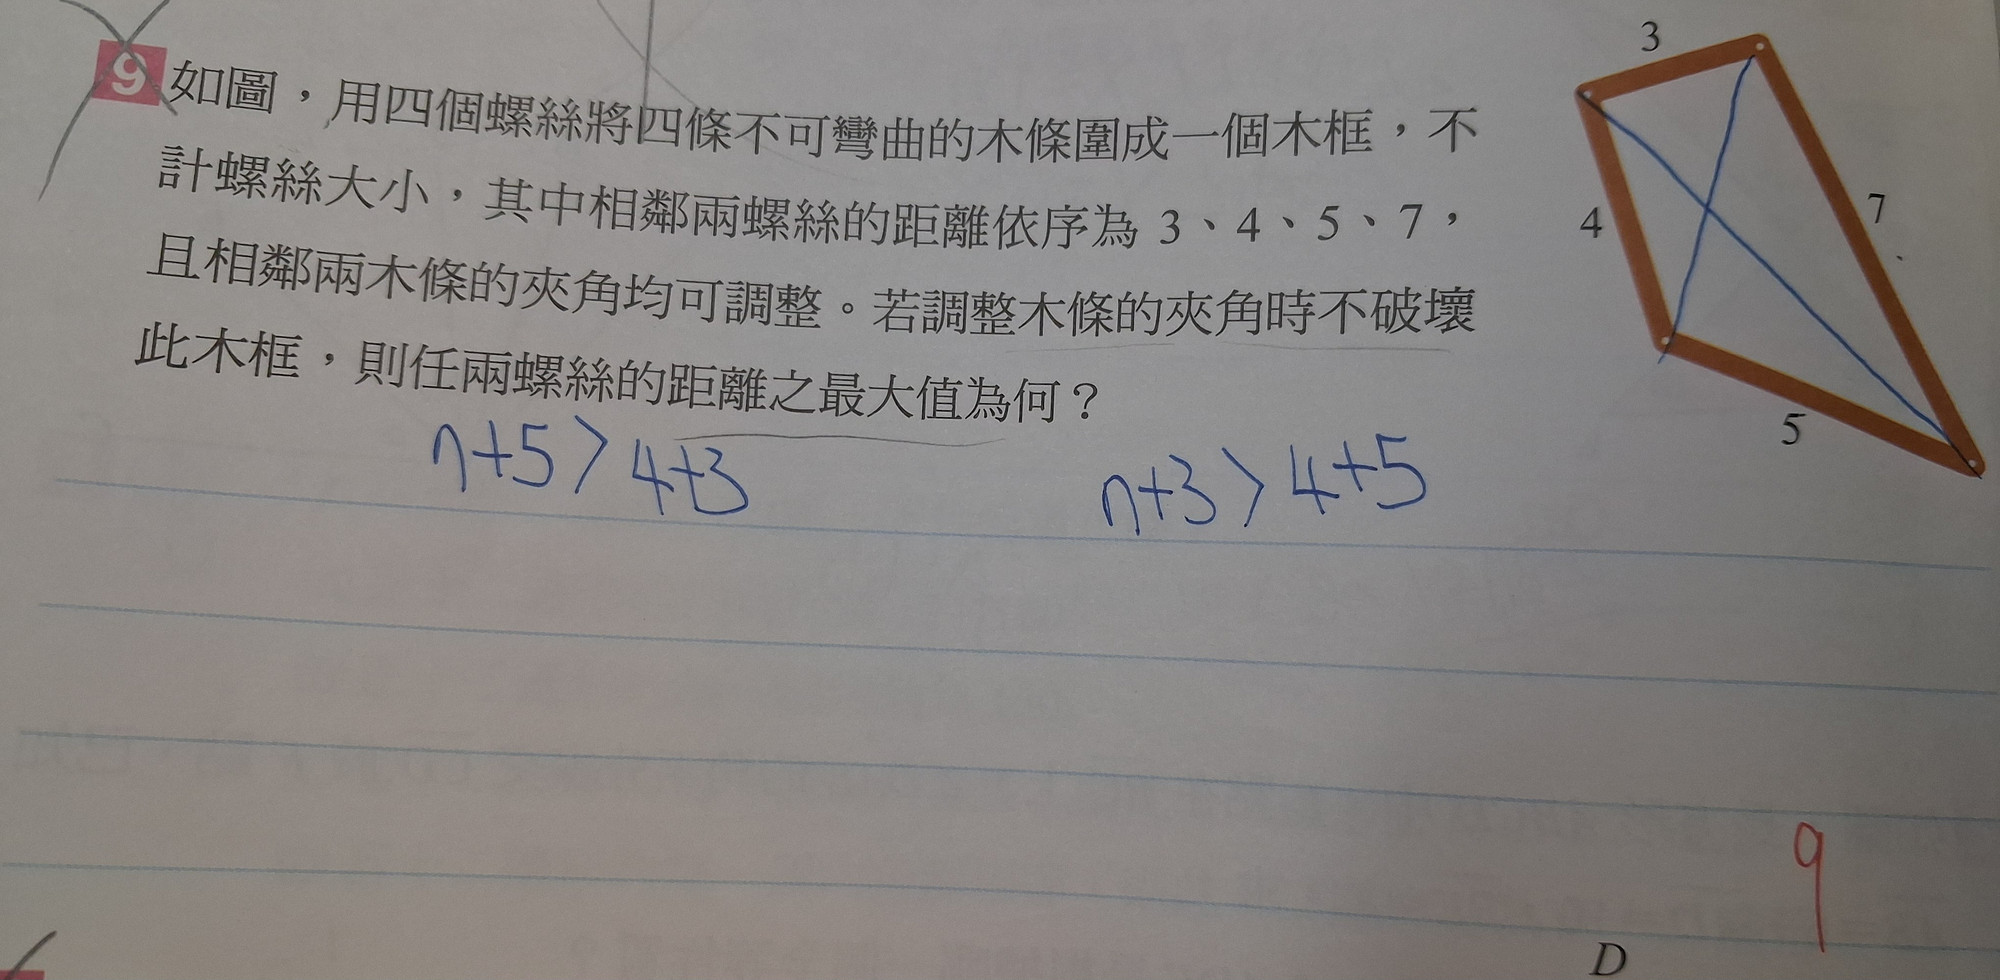 3
9 如圖，用四個螺絲將四條不可彎曲的木條圍成一個木框，不
計螺絲大小，其中相鄰兩螺絲的距離依序為 3、4、5、7，
7
4
且相鄰兩木條的夾角均可調整。若調整木條的夾角時不破壞
此木框，則任兩螺絲的距離之最大值為何？
5
n+5>4+3
n+3>4+5
9
D